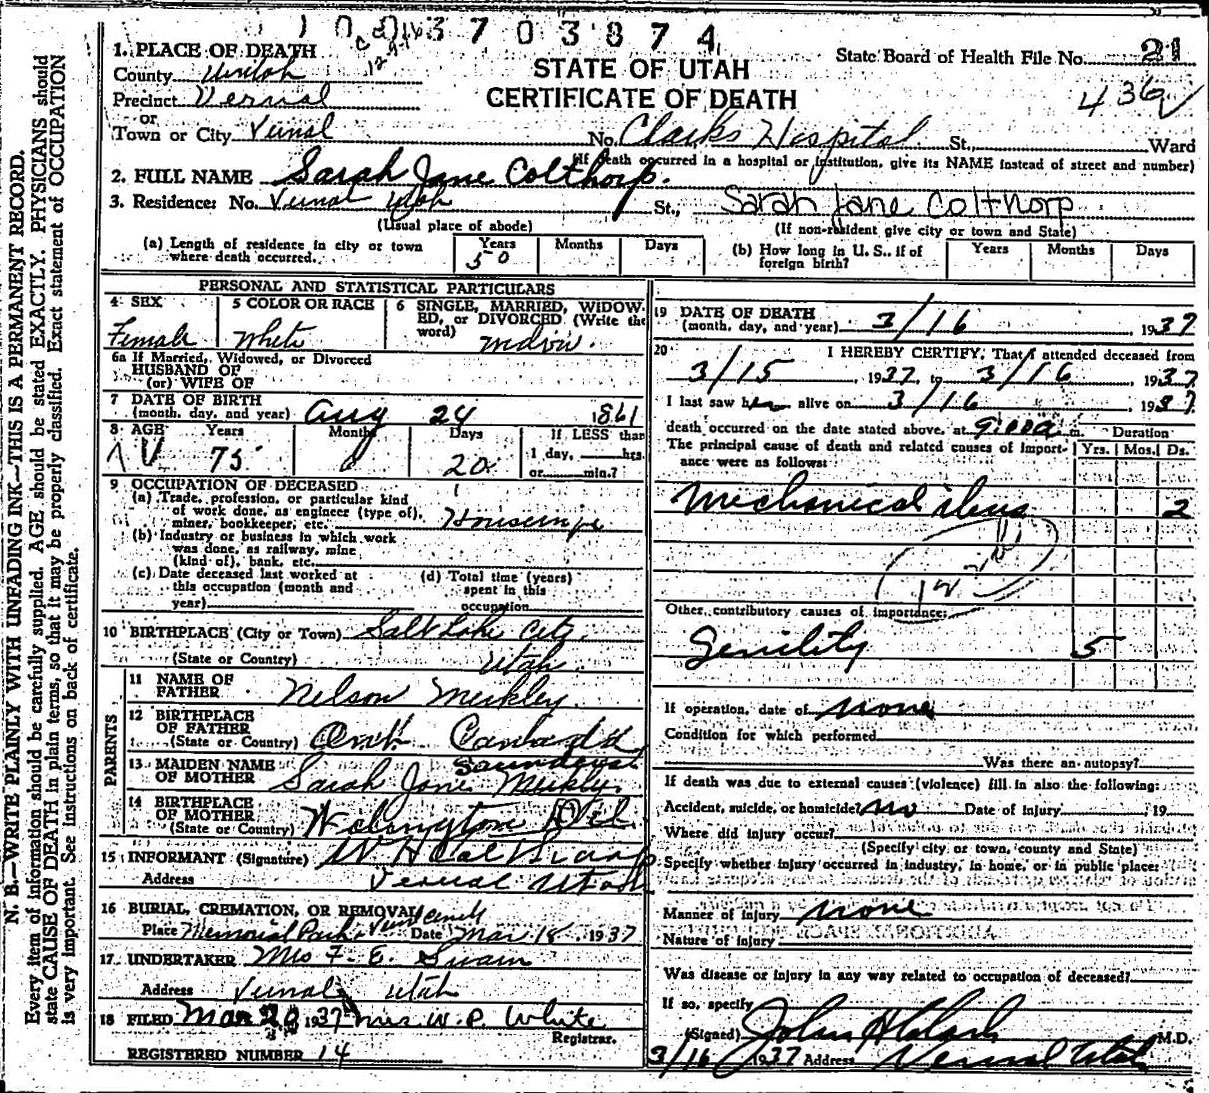 3703874
12-9-1
State Board of Health File No. 21
1. PLACE OF DEATH
County Uintah
STATE OF UTAH
436
Precinct Vernal
CERTIFICATE OF DEATH
or
Town or City Vernal No. Clarks Hospital. St., Ward
(If death occurred in a hospital or institution, give its NAME instead of street and number)
2. FULL NAME Sarah Jane Colthorp.
3. Residence: No. Vernal Utah St., Sarah Jane Colthorp
(Usual place of abode) (If non-resident give city or town and State)
(a) Length of residence in city or town where death occurred. Years 50 Months Days
(b) How long in U. S., if of foreign birth? Years Months Days
PERSONAL AND STATISTICAL PARTICULARS
4 SEX Female
5 COLOR OR RACE White
6 SINGLE, MARRIED, WIDOW-
ED, or DIVORCED (Write the
word)
6a If Married, Widowed, or Divorced
HUSBAND OF
(or) WIFE OF
7 DATE OF BIRTH
(month, day, and year) Aug 24 1861
8 AGE Years 75 Months Days 20 If LESS than
1 day, hrs.
or min.?
9 OCCUPATION OF DECEASED
(a) Trade, profession, or particular kind
of work done, as engineer (type of),
miner, bookkeeper, etc. Housewife
(b) Industry or business in which work
was done, as railway, mine
(kind of), bank, etc.
(c) Date deceased last worked at
this occupation (month and
year)
(d) Total time (years)
spent in this
occupation
10 BIRTHPLACE (City or Town) Salt Lake City.
(State or Country) Utah
PARENTS
11 NAME OF
FATHER Nelson Merkley
12 BIRTHPLACE
OF FATHER
(State or Country) Ont Canada
13 MAIDEN NAME
OF MOTHER Sarah Jane Merkley
14 BIRTHPLACE
OF MOTHER
(State or Country) Del.
15 INFORMANT (Signature)
Address Vernal Utah
16 BURIAL, CREMATION, OR REMOVAL
Place Memorial Park, Date Mar 18, 1937
17 UNDERTAKER Mrs F. E. Swain
Address Vernal Utah
18 FILED Mar 20 1937 Mrs W. P. White
Registrar.
REGISTERED NUMBER 14
19 DATE OF DEATH
(month, day, and year) 3/16 1937
20 I HEREBY CERTIFY, That I attended deceased from
3/15, 1937, to 3/16, 1937
I last saw her alive on 3/16 1937
death occurred on the date stated above, at m. Duration
The principal cause of death and related causes of import-
ance were as follows: Yrs. Mos. Ds.
Mechanical ileus 2
Other contributory causes of importance:
Senility 5
If operation, date of none
Condition for which performed
Was there an autopsy?
If death was due to external causes (violence) fill in also the following:
Accident, suicide, or homicide? no Date of injury 19
Where did injury occur?
(Specify city or town, county and State)
Specify whether injury occurred in industry, in home, or in public place:
Manner of injury none
Nature of injury
Was disease or injury in any way related to occupation of deceased?
If so, specify
(Signed) John H Clark M.D.
3/16 1937 Address Vernal Utah
N. B.—WRITE PLAINLY WITH UNFADING INK—THIS IS A PERMANENT RECORD.
Every item of information should be carefully supplied. AGE should be stated EXACTLY. PHYSICIANS should
state CAUSE OF DEATH in plain terms, so that it may be properly classified. Exact statement of OCCUPATION
is very important. See instructions on back of certificate.